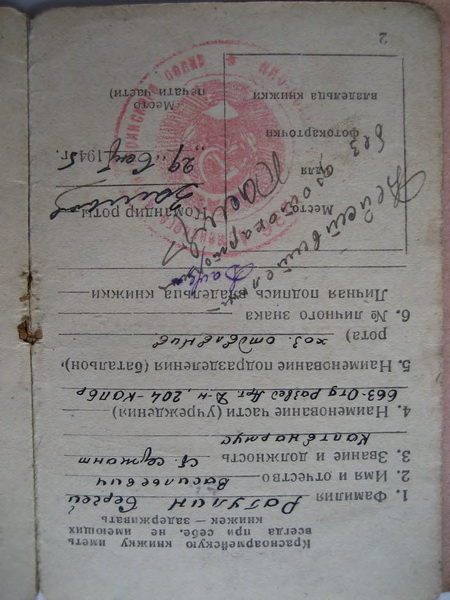 Красноармейскую книжку иметь
всегда при себе. не имеющих
книжек — задерживать
1. Фамилия Ратулин Сергей
2. Имя и отчество Василевич
3. Звание и должность Ст. сержант
4. Наименование части (учреждения)
663-Отд развед Арт. Д-н, 204-КАПбр
5. Наименование подразделения (батальон,
рота) хоз. отделение
6. № личного знака
Личная подпись владельца книжки
Место
для
фотокарточки
владельца книжки
Действительно
без фотокарточки
Командир роты
29 1945 г.
Место
печати части)
2